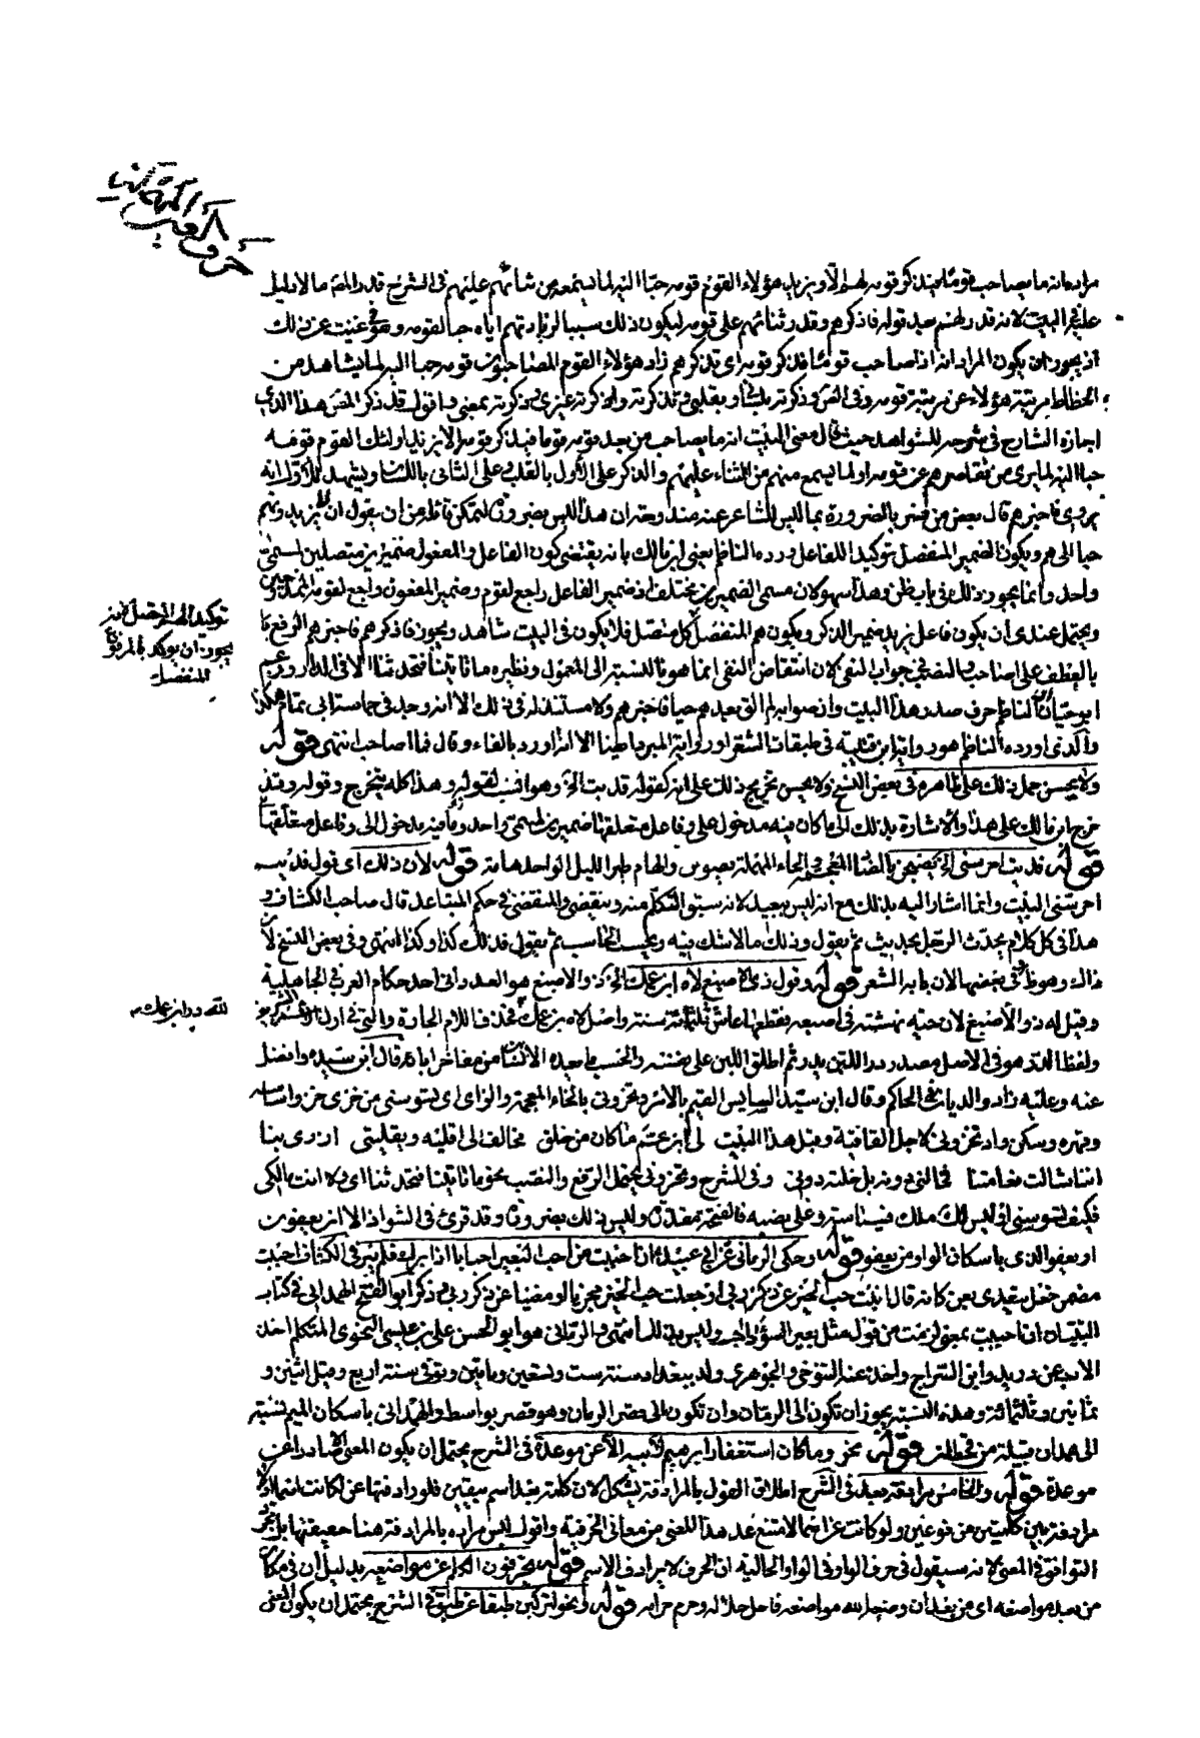 مراده انه ما يصاحب قوما فيذكر قومه لهم الا ويزيد هؤلاء القوم قومه حبا اليه لما يسمعه من ثنائهم عليهم في الشرح قدر المص ما لا دليل
عليه في البيت لانه قدر لهم بعد قوله فاذكرهم وقدر ثنائهم على قومه ليكون ذلك سببا لزيادتهم اياه حبا لقومه وهو في غنيت عن ذلك
اذ يجوز ان يكون المراد انه اذا صاحب قوما فذكر قومه اي تذكرهم زاد هؤلاء القوم المصاحبون قومه حبا اليه لما يشاهد من
انحطاط مرتبة هؤلاء عن مرتبة قومه وفي ذكرته بلساني وبقلبي وتذكرته واذكرته غيري وذكرته بمعنى واقول قد ذكر المص هذا الذي
اجازه الشارح في شرحه للشواهد حيث قال معنى البيت انه ما يصاحب من بعد قومه قوما فيذكر قومه الا يزيد اولئك القوم قومه
حبا اليه لما يرى من تقاصرهم عن قومه او لما يسمع منهم من الثناء عليهم والذكر على الاول بالقلب وعلى الثاني باللسان ويشهد للاول انه
يروى فاخبرهم قال بعض من فسر الضرورة بما ليس للشاعر عنه مندوحة ان هذا ليس بضرورة لتمكن قائله من ان يقول الا يزيدونهم
حبا الي هم ويكون الضمير المنفصل توكيدا للفاعل ورده الناظم يعني ابن مالك بانه يقتضي كون الفاعل والمفعول ضميرين متصلين لمسمى
واحد وانما يجوز ذلك في باب ظن وهذا سهو لان مسمى الضميرين مختلف اذ ضمير الفاعل راجع لقوم وضمير المفعول راجع لقومه الممدوحين
ويحتمل عندي ان يكون فاعل يزيد ضمير الذكر ويكون هم المنفصل كل متصل فلا يكون في البيت شاهد ويجوز فاذكرهم فاخبرهم الرفع
بالعطف على اصاحب والنصب في جواب النفي لان انتقاض النفي انما هو بالنسبة الى المعمول ونظيره ما تأتينا فتحدثنا الا في الدار وزعم
ابو حيان ان الناظم حرف صدر هذا البيت وان صوابه لم الق بعدهم حيا فاخبرهم ولا مستند له في ذلك الا انه وجد في حماسة ابي تمام هكذا
والذي اورده الناظم هو رواية ابن قتيبة في طبقات الشعراء ورواية المبرد الا انه اورد بالفاء وقال فما اصاحب انتهى قوله
ولا يحسن حمل ذلك على ظاهره في بعض النسخ ولا يحسن تخريج ذلك على انه كقوله قد بت الخ وهو انسب لقوله وهذا كله يتخرج وقوله وقد
خرج ابن مالك على هذا والاشارة بذلك الى ما كان فيه مدخول على وفاعل متعلقها ضميرين لمسمى واحد وما فيه مدخول الى وفاعل متعلقها
قوله قد بت احرسني الخ يضبح بالضاد المعجمة والحاء المهملة يصوت والهام طير الليل الواحد هامة قوله لان ذلك اي قول قد بت
احرسني البيت وانما اشار اليه بذلك مع انه ليس ببعيد لانه سبق التكلم منه وتنقضي والمنقضي في حكم المتباعد قال صاحب الكشاف و
هذا في كل كلام يحدث الرجل بحديث ثم يقول وذلك ما لا شك فيه ويحسب الحاسب ثم يقول فذلك كذا وكذا انتهى وفي بعض النسخ لان
ذاك وهو في بعضها لان بابه الشعر قوله وقول ذي الاصبع لاه ابن عمك الخ ذو الاصبع هو العدواني احد حكام العرب في الجاهلية
وقيل له ذو الاصبع لان حية نهشته في اصبعه فقطعها عاش ثلثمائة سنة واصل لاه ابن عمك فحذف اللام الجارة والتي في اول
ولفظ الدر هو في الاصل مصدر در اللبن يدر ثم اطلق اللبن على نفسه والحسب ما يعده الانسان من مفاخر اباه قال ابن سيده وافضل
عنه وعليه زاد والديان الحاكم وقال ابن سيد السايس القيم بالامر وتخزوني بالخاء المعجمة والزاي اي تسوسني من خزى خزوا
وقهره وسكن واو تخزوني لاجل القافية وقبل هذا البيت لي ابن عم ما كان من خلق مخالف لي اقليه ويقليني ازرى بنا
اننا شالت نعامتنا فخالني دونه بل خلته دوني وفي الشرح وتخزوني يحتمل الرفع والنصب نحو ما تأتينا فتحدثنا اي ولا انت مالكي
فكيف تسوسني اي ليس لك ملك فسياسة وعلى نصبه فالفتحة مقدرة وليس ذلك بضرورة وقد قرئ في الشواذ الا ان يعفون
او يعفو الذي باسكان الواو من يعفو قوله وحكى الرماني عن ابي عبيدة احببت من احب البعير احبابا اذا برك فلم يثر في الكشاف احببت
مضمن فعل يتعدى بعن كانه قال انبت حب الخير عن ذكر ربي او جعلت حب الخير مجزيا او مغنيا عن ذكر ربي وذكر ابو الفتح الهمداني في كتاب
التبيان ان احببت بمعنى لزمت من قول مثل بعير السوء اذ احب وليس بذاك انتهى والرماني هو ابو الحسن علي بن عيسى النحوي المتكلم اخذ
الادب عن دريد وابن السراج واخذ عنه التنوخي والجوهري ولد ببغداد سنة ست وتسعين وماتين وتوفي سنة اربع وقيل اثنين و
ثمانين وثلثمائة وهذه النسبة يجوز ان تكون الى الرمان وان تكون الى قصر الرمان وهو قصر بواسط والهمداني باسكان الميم نسبة
الى همدان قبيلة من قحطان قوله نحو وما كان استغفار ابرهيم لابيه الا عن موعدة في الشرح يحتمل ان يكون المعنى الا صادرا عن
موعدة قوله والخامس مرادفة بعد في الشرح اطلاق القول بالمرادفة يشكل لان كلمة بعد اسم بيقين فلو رادفتها عن لكانت اسما
مرادفة بين كلمتين من نوعين ولو كانت عن اسما لامتنع عد هذا المعنى من معاني الحرفية واقول ليس مراده بالمرادفة هنا حقيقتها بل مجرد
التوافق في المعنى لانه سيقول في حرف الواو في الواو الحالية ان الحرف لا يرادف الاسم قوله يحرفون الكلم عن مواضعه بدليل ان في مكان
من بعد مواضعه اي من بعد ان وضعها الله مواضعه فاحل حلاله وحرم حرامه قوله ونحو لتركبن طبقا عن طبق في الشرح يحتمل ان يكون المعنى
توكيدا للمتصل لانه
يجوز ان يوكد بالمرفوع
المنفصل
لله در ابن عمك